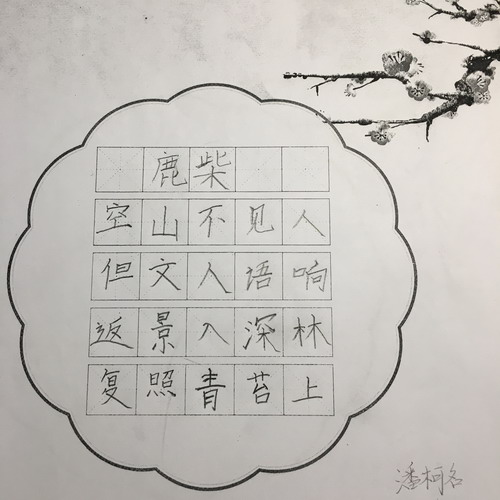 鹿柴
空山不见人
但文人语响
返景入深林
复照青苔上
潘柯名